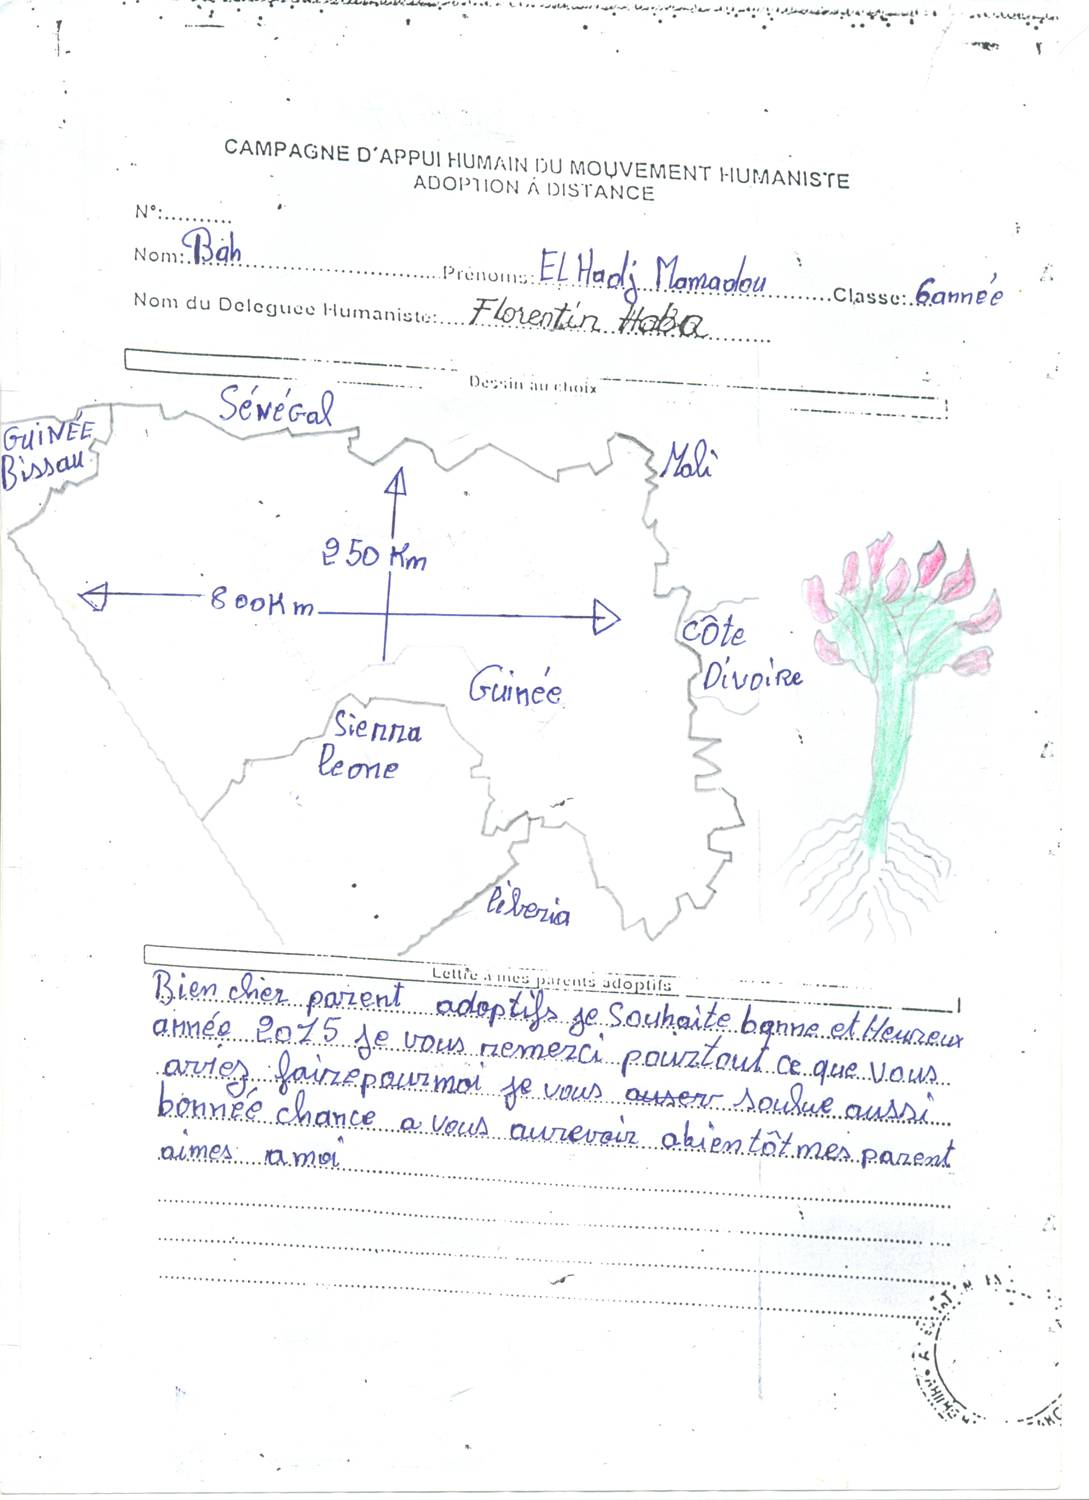 CAMPAGNE D'APPUI HUMAIN DU MOUVEMENT HUMANISTE
ADOPTION À DISTANCE
N°:..........
Nom: Bah Prénoms: EL Hadj Mamadou Classe: 6année
Nom du Deleguee Humaniste: Florentin Haba
Dessin au choix
GUINÉE
Bissau
Sénégal
Mali
250 Km
800Km
Côte
Divoire
Guinée
Sienna
leone
liberia
Lettre a mes parents adoptifs
Bien cher parent adoptifs je Souhaite bonne et Heureux
année 2015 je vous remerci pourtout ce que vous
arriez faire pour moi je vous soulue aussi
bonnéé chance a vous aurevoir abientôt mes parent
aimes a moi